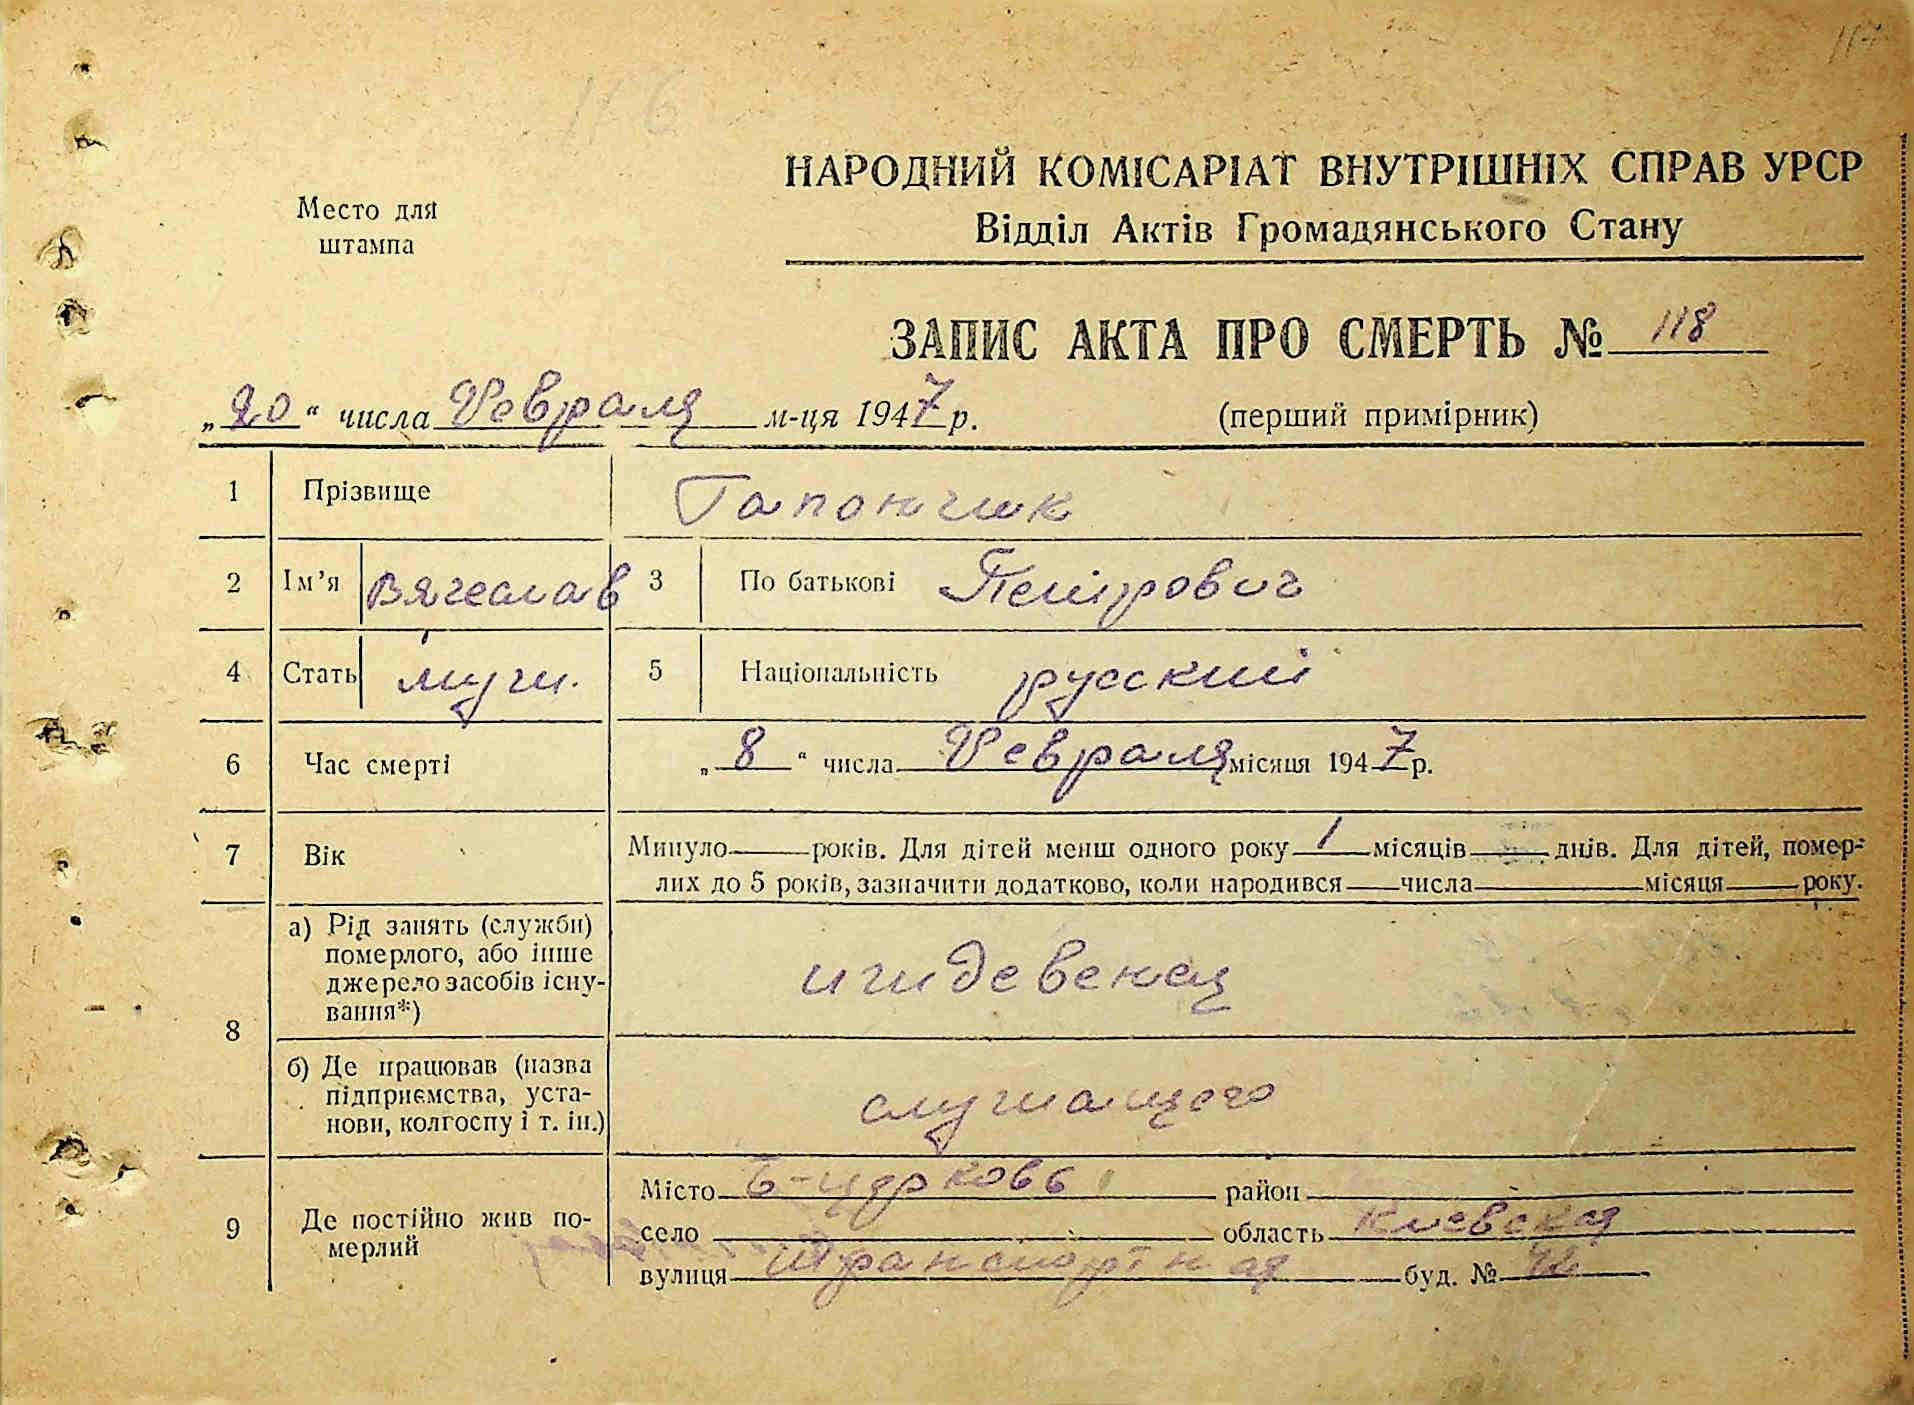 116
Место для
штампа
НАРОДНИЙ КОМІСАРІАТ ВНУТРІШНІХ СПРАВ УРСР
Відділ Актів Громадянського Стану
ЗАПИС АКТА ПРО СМЕРТЬ № 118
„20“ числа Февраля м-ця 1947 р. (перший примірник)
1 Прізвище Гапончик
2 Ім’я Вячеслав 3 По батькові Петрович
4 Стать муж. 5 Національність русский
6 Час смерті „8“ числа Февраля місяця 1947 р.
7 Вік Минуло років. Для дітей менш одного року 1 місяців днів. Для дітей, помер-
лих до 5 років, зазначити додатково, коли народився числа місяця року.
8 а) Рід занять (служби)
померлого, або інше
джерело засобів існу-
вання*) иждевенец
б) Де працював (назва
підприємства, уста-
нови, колгоспу і т. ін.) служащего
9 Де постійно жив по-
мерлий
Місто Б-Церковь район
село область Киевская
вулиця Транспортная буд. №